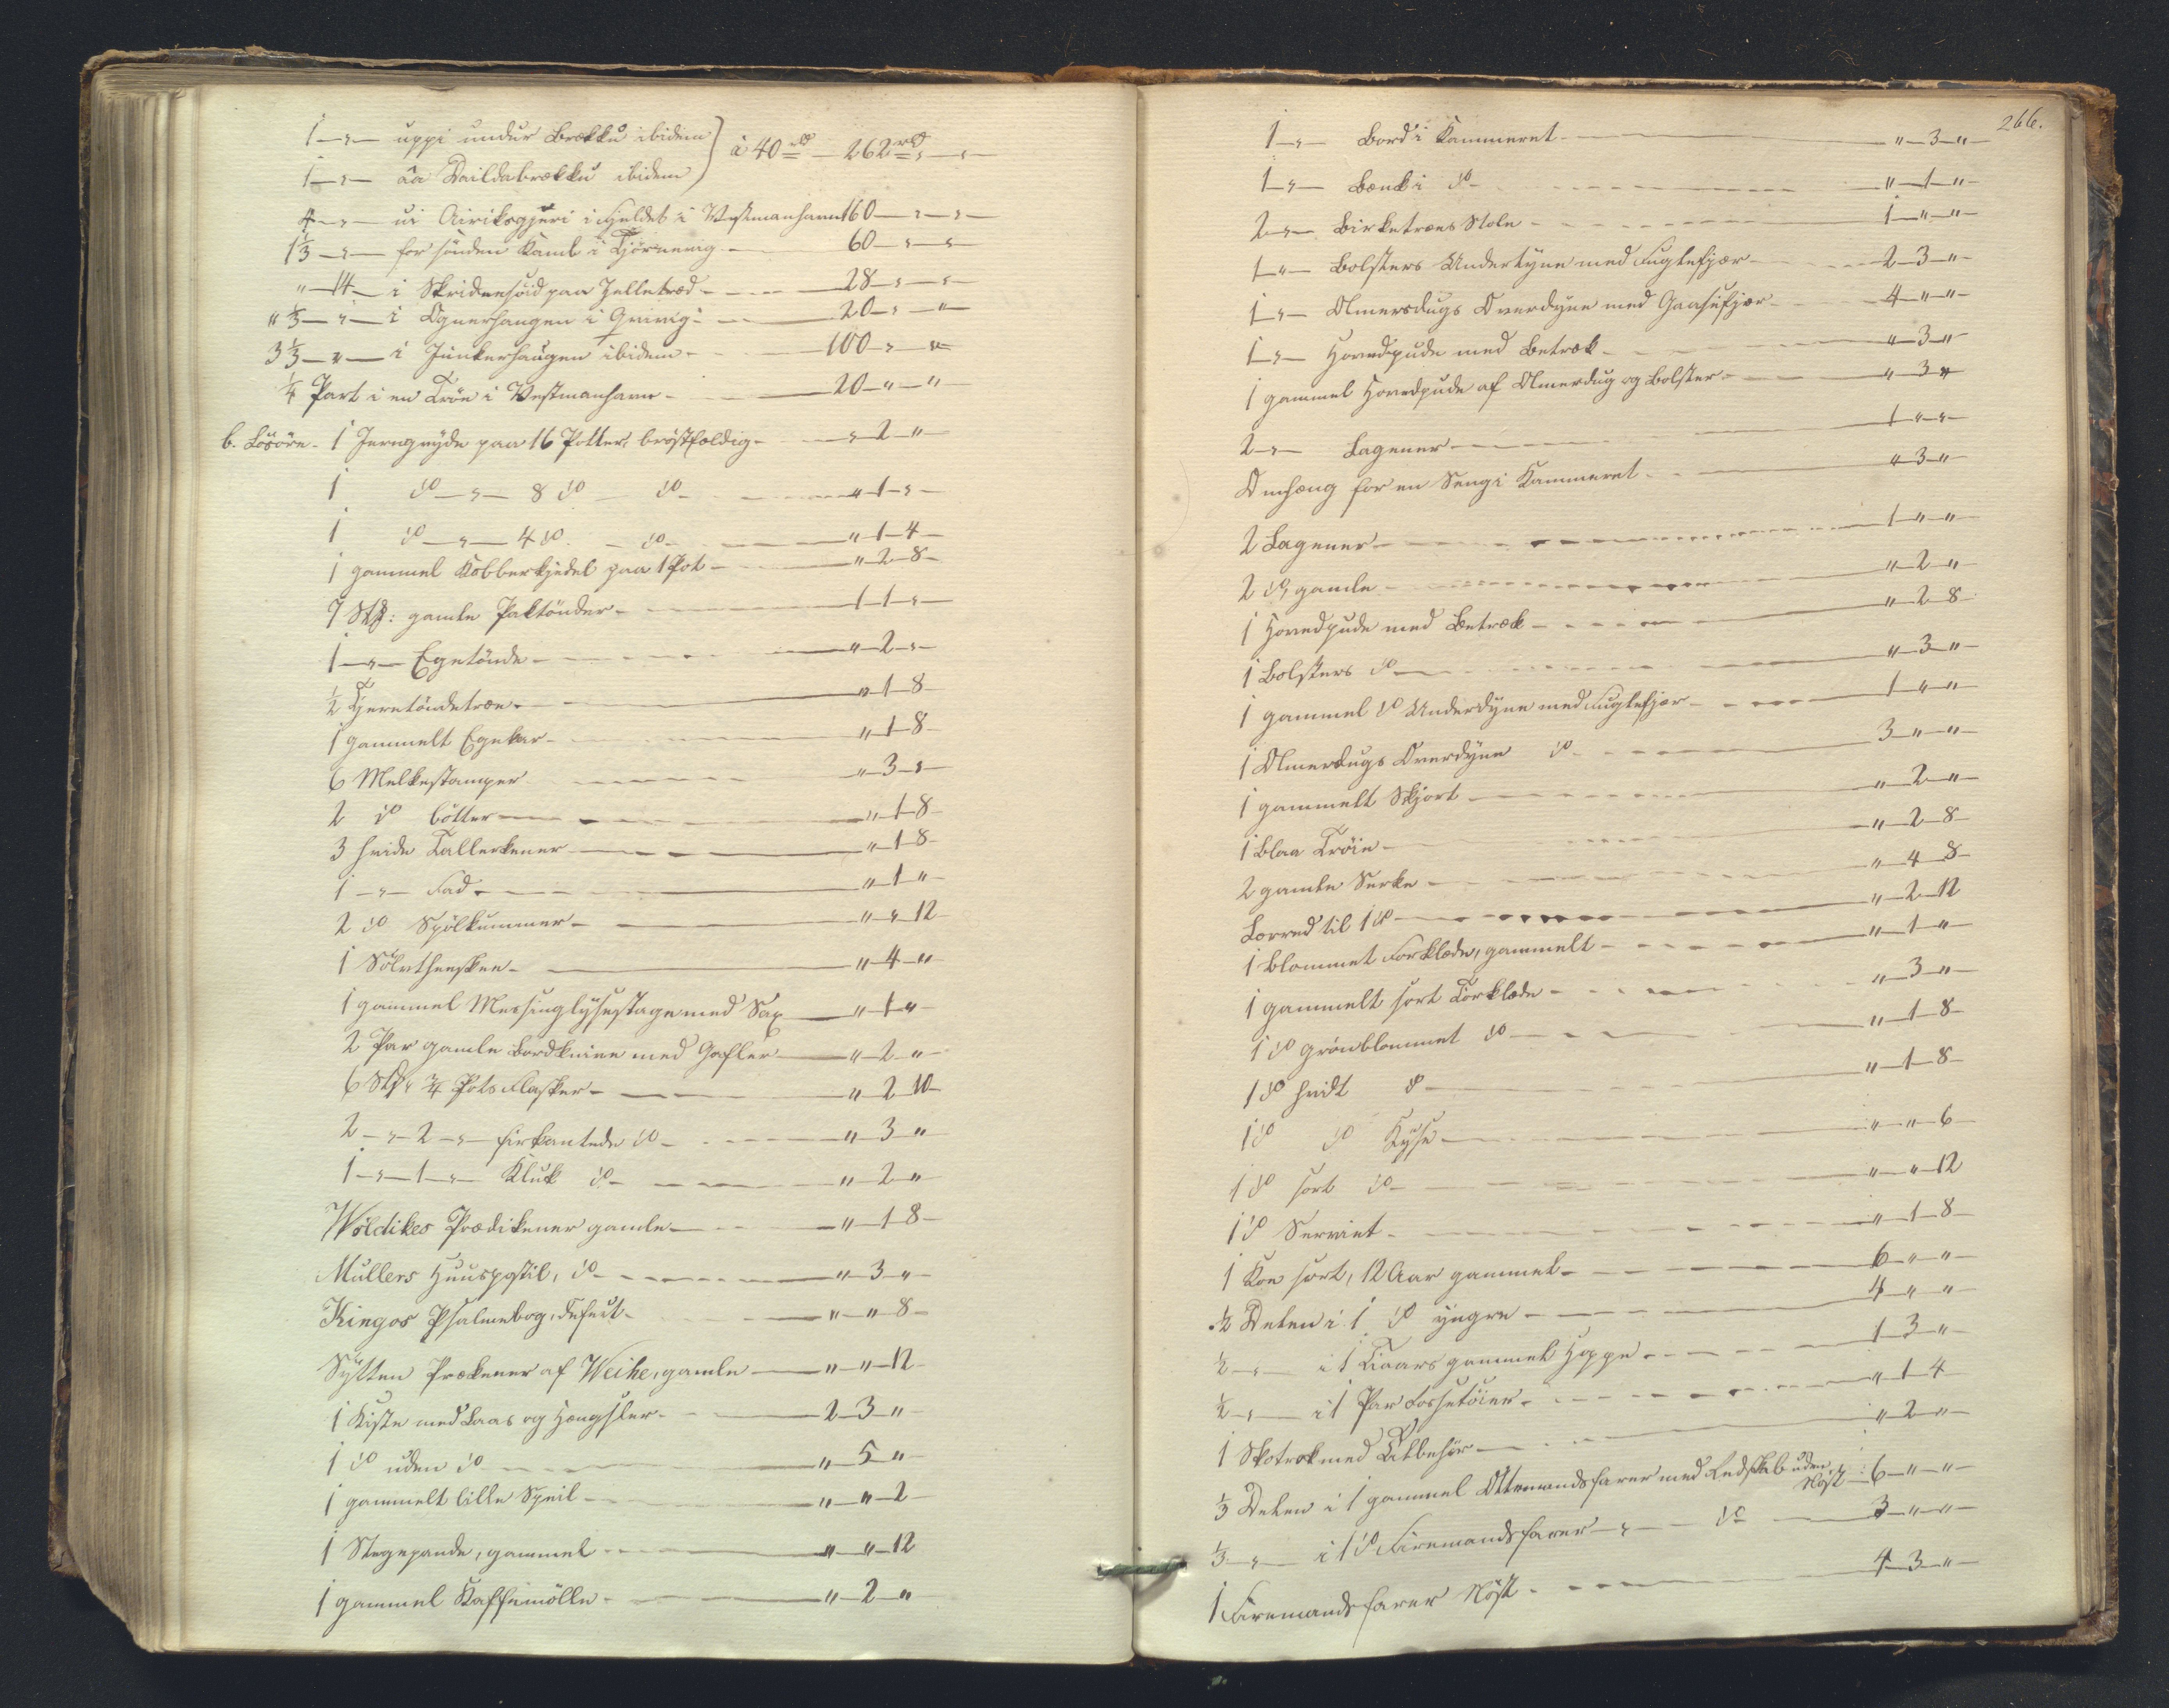 1 – „ – uppi undur Brekku ibidem } à 40 rd – 262 rd „ – „ –
1 – „ – áa Daildabrekku ibidem
4 – „ – ui Airiksgjøri i Fjeldet i Vestmanhavn 160 – „ – „ –
1⅓ – „ – for sönden Kamb i Tjörnevig – 60 – „ – „ –
„ – 14 – i paa Zelletræd – 28 – „ – „ –
„ ⅓ – „ – i Ognerhaugen i Qvivig – 20 – „ – „
3⅓ – „ – i Junkerhaugen ibidem – 100 – „ – „
¼ Part i en Tröe i Vestmanhavn – 20 – „ – „
b. Lösöre – 1 Jerngryde paa 16 Potter, bröstfældig – „ 2 – „
1 do – „ – 8 do – do – „ – 1 – „ –
1 do – „ – 4 do – do – „ – 1 – 4 –
1 gammel Kobberkjedel paa 1 Pot – „ – 2 – 8 –
7 Stk: gamle Paktönder – 1 – 1 – „ –
1 – „ – Egetönde – „ – 2 – „ –
½ Tjeretöndetræe – „ – 1 – 8
1 gammelt Egekar – „ – 1 – 8 –
6 Melkestamper – „ – 3 – „ –
2 do bötter – „ – 1 – 8 –
3 hvide Tallerkener – „ – 1 – 8 –
1 – „ – Fad – „ – 1 – „ –
2 do Spölkummer – „ – „ – 12 –
1 Sölvtheeskee – „ – 4 – „
1 gammel Messinglysestage med Sax – „ – 1 – „ –
2 Par gamle Bordknive med Gafler – „ – 2 – „ –
6 Stk: ¾ Pots Flasker – „ – 2 – 10 –
2 – „ – 2 – „ – firkantede do – „ – 3 – „
1 – „ – 1 – „ – Kluk do – „ – 2 – „
Wöldikes Prædikener gamle – „ – 1 – 8 –
Mullers Huuspostil, do – „ – 3 – „ –
Kingos Psalmebog, defect – „ – „ – 8 –
Sytten Prækener af Weihe, gamle – „ – „ – 12 –
1 Kiste med Laas og Hængsler – 2 – 3 – „
1 do uden do – „ – 5 – „
1 gammelt lille Speil – „ – „ – 2 –
1 Stegepande, gammel – „ – „ – 12
1 gammel Kaffemölle – „ – 2 – „
266.
1 – „ – Bord i Kammeret – „ – 3 – „ –
1 – „ – Bænk i do – „ – 1 – „ –
2 – „ – Birketræes Stole – 1 – „ – „ –
1 – „ – Bolsters Underdyne med Fuglefjær – 2 – 3 – „ –
1 – „ – Olmersdugs Overdyne med Gaasefjær – 4 – „ – „ –
1 – „ – Hovedpude med Betræk – „ – 3 – „
1 gammel Hovedpude af Olmerdug og Bolster – „ – 3 – „
2 – „ – Lagener – 1 – „ – „ –
Omhæng for en Seng i Kammeret – „ – 3 – „ –
2 Lagener – 1 – „ – „ –
2 do, gamle – „ – 2 – „ –
1 Hovedpude med Betræk – „ – 2 – 8
1 Bolsters do – „ – 3 – „ –
1 gammel do Underdyne med Fuglefjær – 1 – „ – „ –
1 Olmerdugs Overdyne do – 3 – „ – „ –
1 gammelt Skjort – „ – 2 – „ –
1 blaa Tröie – „ – 2 – 8 –
2 gamle Serke – „ – 4 – 8 –
Lerred til 1 do – „ – 2 – 12
1 blommet Forklæde, gammelt – „ – 1 – „ –
1 gammelt sort Törklæde – „ – 3 – „ –
1 do grönblommet do – „ – 1 – 8 –
1 do hvidt do – „ – 1 – 8 –
1 do do Kyse – „ – „ – 6 –
1 do sort do – „ – „ – 12
1 do Serviet – „ – 1 – 8 –
1 Koe sort, 12 Aar gammel – 6 – „ – „ –
½ Delen i 1 do yngre – 4 – „ – „ –
½ – „ – i 1 Tiaars gammel Hoppe – 1 – 3 – „ –
½ – „ – i 1 Par – „ – 1 – 4 –
1 Skotrok med Tilbehör – „ – 2 – „ –
⅓ Delen i 1 gammel Ottemandsfarer med Redskab uden Nöst – 6 – „ – „ –
⅓ – „ – i 1 do Firemandsfarer – „ – do – 3 – „ – „ –
1 Firemandsfarer Nöst – 4 – 3 – „ –